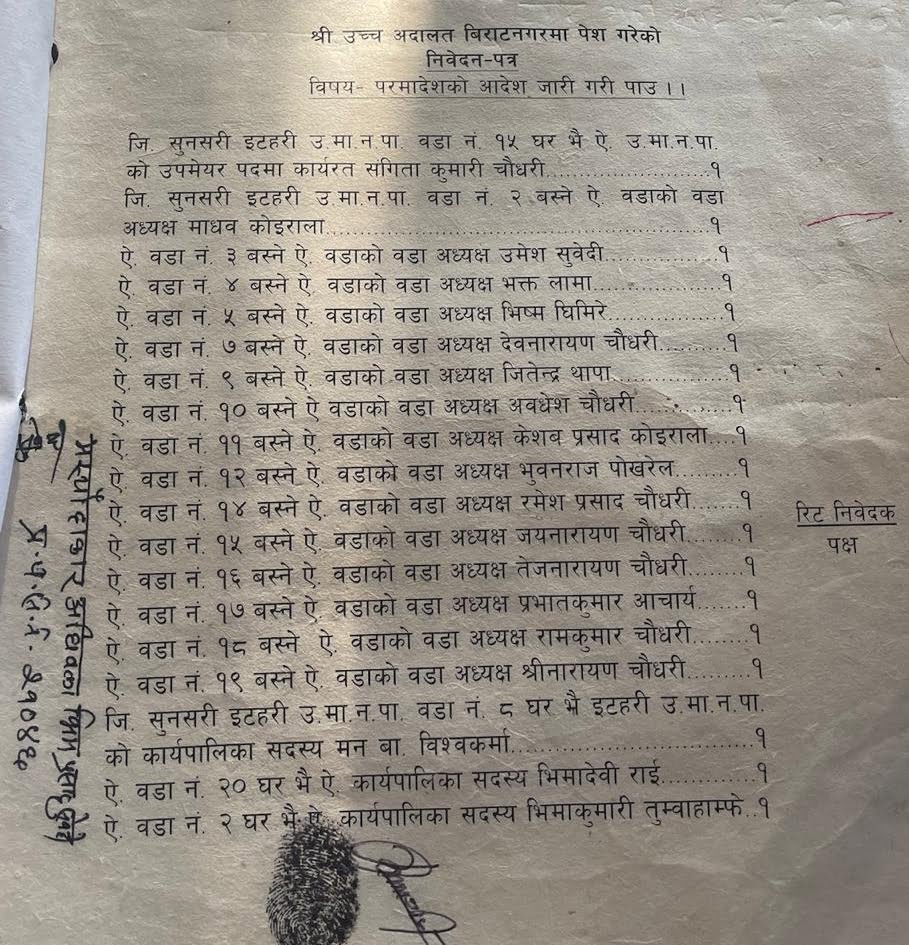 श्री उच्च अदालत बिराटनगरमा पेश गरेको
निवेदन-पत्र
विषय- परमादेशको आदेश जारी गरी पाउ ।।
जि. सुनसरी इटहरी उ.मा.न.पा. वडा नं. १५ घर भै ऐ. उ.मा.न.पा.
को उपमेयर पदमा कार्यरत संगिता कुमारी चौधरी........................१
जि. सुनसरी इटहरी उ.मा.न.पा. वडा नं. २ बस्ने ऐ. वडाको वडा
अध्यक्ष माधव कोइराला........................................................१
ऐ. वडा नं. ३ बस्ने ऐ. वडाको वडा अध्यक्ष उमेश सुवेदी................१
ऐ. वडा नं. ४ बस्ने ऐ. वडाको वडा अध्यक्ष भक्त लामा..................१
ऐ. वडा नं. ५ बस्ने ऐ. वडाको वडा अध्यक्ष भिष्म घिमिरे................१
ऐ. वडा नं. ७ बस्ने ऐ. वडाको वडा अध्यक्ष देवनारायण चौधरी..........१
ऐ. वडा नं. ९ बस्ने ऐ. वडाको वडा अध्यक्ष जितेन्द्र थापा................१
ऐ. वडा नं. १० बस्ने ऐ वडाको वडा अध्यक्ष अवधेश चौधरी..............१
ऐ. वडा नं. ११ बस्ने ऐ. वडाको वडा अध्यक्ष केशब प्रसाद कोइराला....१
ऐ. वडा नं. १२ बस्ने ऐ. वडाको वडा अध्यक्ष भुवनराज पोखरेल.........१
ऐ. वडा नं. १४ बस्ने ऐ. वडाको वडा अध्यक्ष रमेश प्रसाद चौधरी.......१
ऐ. वडा नं. १५ बस्ने ऐ. वडाको वडा अध्यक्ष जयनारायण चौधरी........१
ऐ. वडा नं. १६ बस्ने ऐ. वडाको वडा अध्यक्ष तेजनारायण चौधरी........१
ऐ. वडा नं. १७ बस्ने ऐ. वडाको वडा अध्यक्ष प्रभातकुमार आचार्य.......१
ऐ. वडा नं. १८ बस्ने ऐ. वडाको वडा अध्यक्ष रामकुमार चौधरी.........१
ऐ. वडा नं. १९ बस्ने ऐ. वडाको वडा अध्यक्ष श्रीनारायण चौधरी.........१
जि. सुनसरी इटहरी उ.मा.न.पा. वडा नं. ८ घर भै इटहरी उ.मा.न.पा.
को कार्यपालिका सदस्य मन बा. विश्वकर्मा................................१
ऐ. वडा नं. २० घर भै ऐ. कार्यपालिका सदस्य भिमादेवी राई............१
ऐ. वडा नं. २ घर भै ऐ. कार्यपालिका सदस्य भिमाकुमारी तुम्वाहाम्फे..१
रिट निवेदक
पक्ष